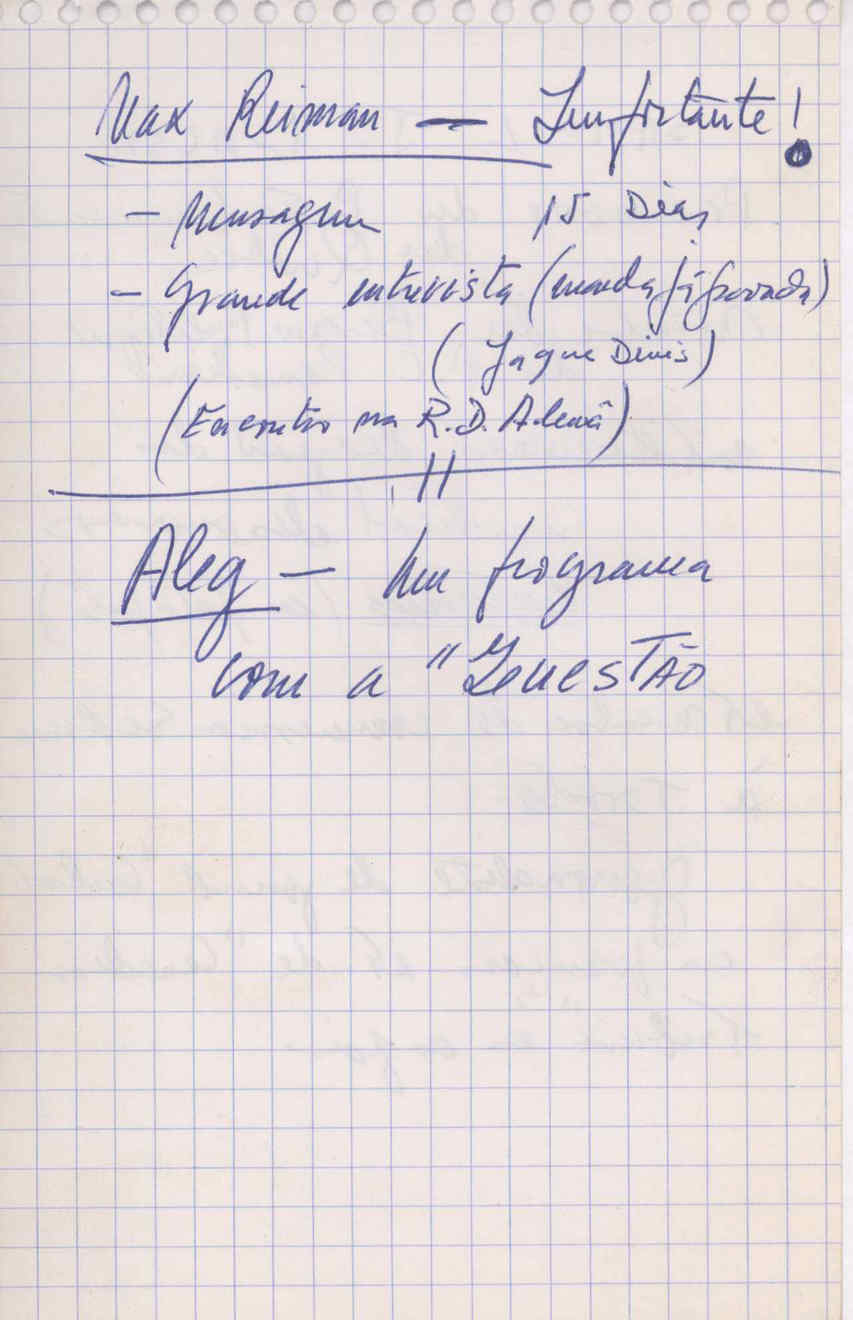 Max Reiman — Importante!
- Mensagem 15 Dias
- Grande entrevista (manda
(Jaque Dinis)
(Encontro na R.D. Alemã)
Aleg — Um programa
com a "QuesTÃO